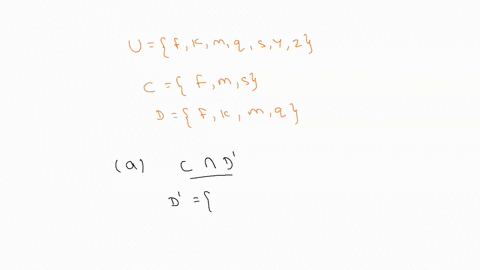 U = {f, k, m, q, s, y, z}
C = {f, m, s}
D = {f, k, m, q}
(a) C ∩ D'
D' = {